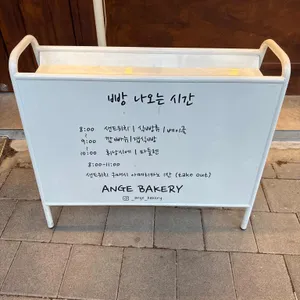 빵 나오는 시간
8:00 샌드위치 | 식빵류 | 베이글
9:00 깜빠뉴 | 잡식빵
10:00 휘낭시에 | 마들렌
8:00-11:00
샌드위치 구매시 아메리카노 1잔 (take out)
ANGE BAKERY
_ange_bakery